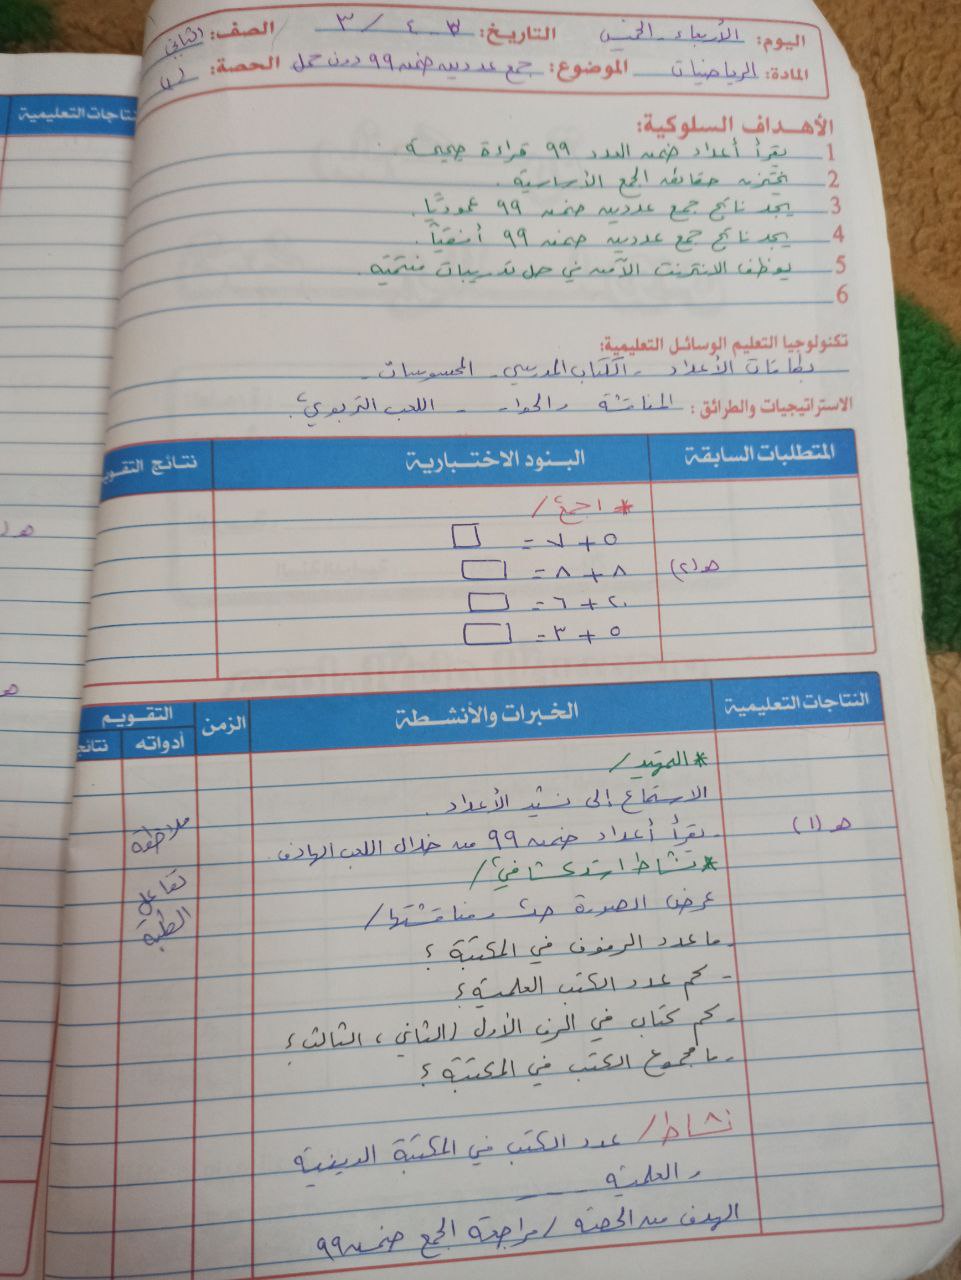 اليوم: الأربعاء - الخميس التاريخ: ٣ - ٤ / ٣ الصف: الثاني
المادة: الرياضيات الموضوع: جمع عددين ضمن ٩٩ دون حمل الحصة:
الأهداف السلوكية:
1 يقرأ أعداد ضمن العدد ٩٩ قراءة صحيحة.
2 يختزن حقائق الجمع الأساسية.
3 يجد ناتج جمع عددين ضمن ٩٩ عموديًا.
4 يجد ناتج جمع عددين ضمن ٩٩ أفقياً.
5 يوظف الانترنت الآمن في حل تدريبات منتمية.
6
تكنولوجيا التعليم الوسائل التعليمية:
بطاقات الأعداد - الكتاب المدرسي - المحسوسات -
الاستراتيجيات والطرائق: المناقشة والحوار - اللعب التربوي.
المتطلبات السابقة البنود الاختبارية نتائج التقو
* اجمع /
٥ + ٧ =
هـ (٢) ٨ + ٨ =
٢٠ + ٦ =
٥ + ٣ =
النتاجات التعليمية الخبرات والأنشطة الزمن التقويم
أدواته نتائج
* التمهيد /
الاستماع إلى نشيد الأعداد.
هـ (١) - يقرأ أعداد ضمن ٩٩ من خلال اللعب الهادف. ملاحظة
* نشاط استكشافي /
عرض الصورة ومناقشتها / تفاعل الطلبة
- ما عدد الرفوف في المكتبة؟
- كم عدد الكتب العلمية؟
- كم كتاب في الرف الأول (الثاني، الثالث؟
- ما مجموع الكتب في المكتبة؟
نشاط / عدد الكتب في المكتبة الدينية
والعلمية
الهدف من الحصة / مراجعة الجمع ضمن ٩٩
نتاجات التعليمية